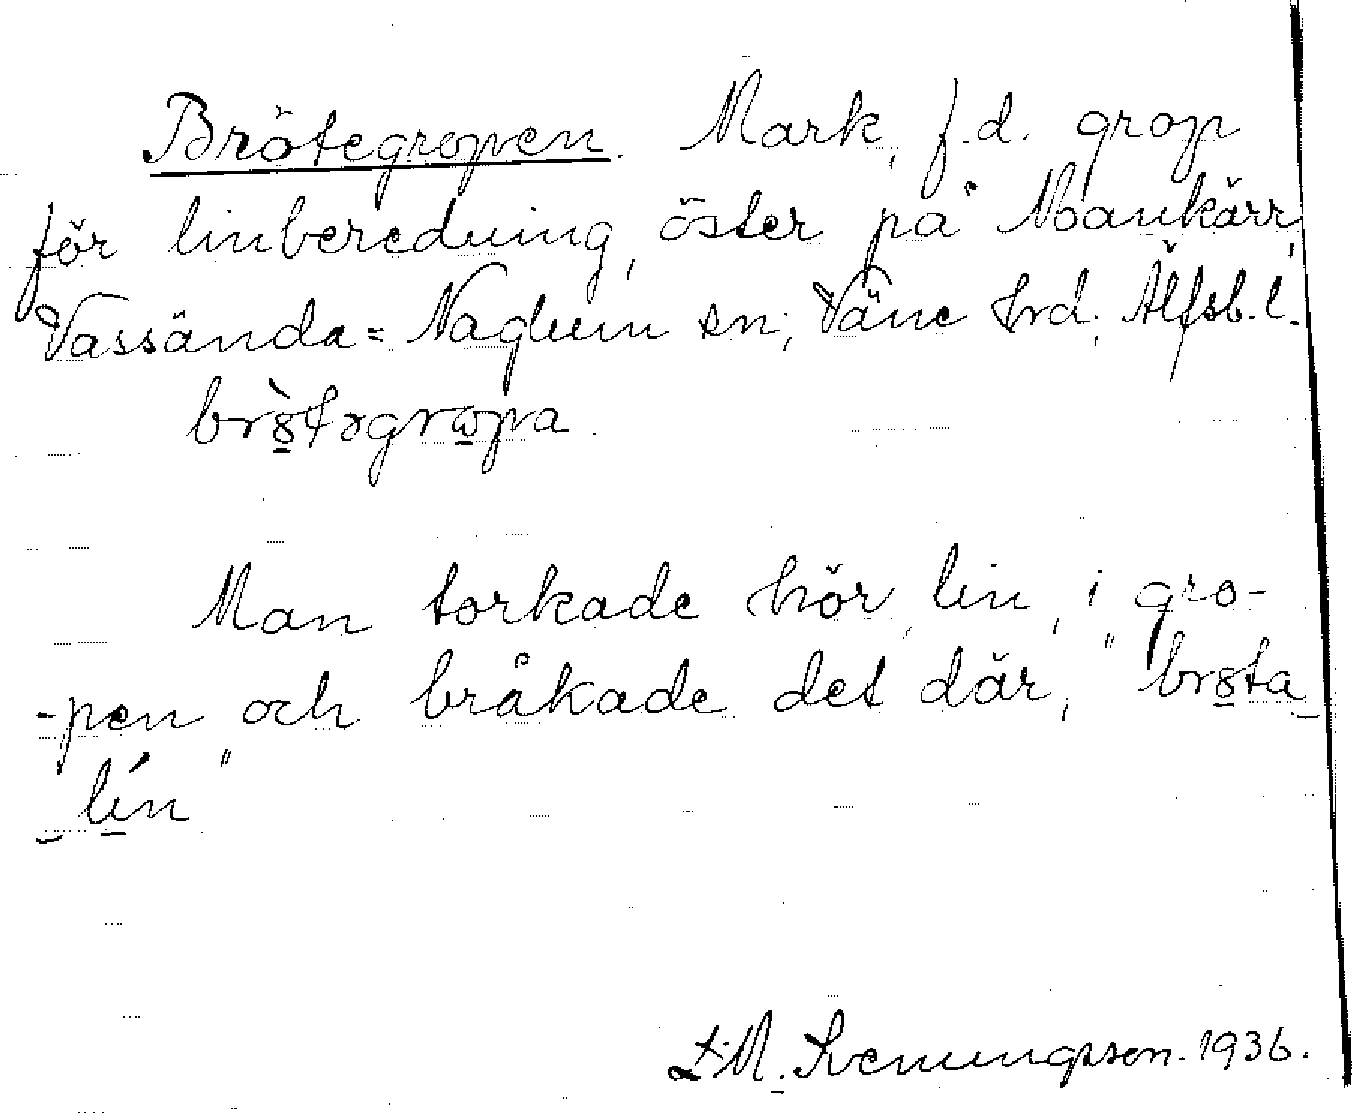 Brötegropen. Mark, f.d. grop
för linberedning, öster på Noankärr,
Vassända=Naglum sn, Väne hrd, Älfsb. l.
br8̀təgrɷpa.
Man torkade hör, lin, i gro-
-pen och bråkade det där, "br8ta
lín"
Svenungsson. 1936.